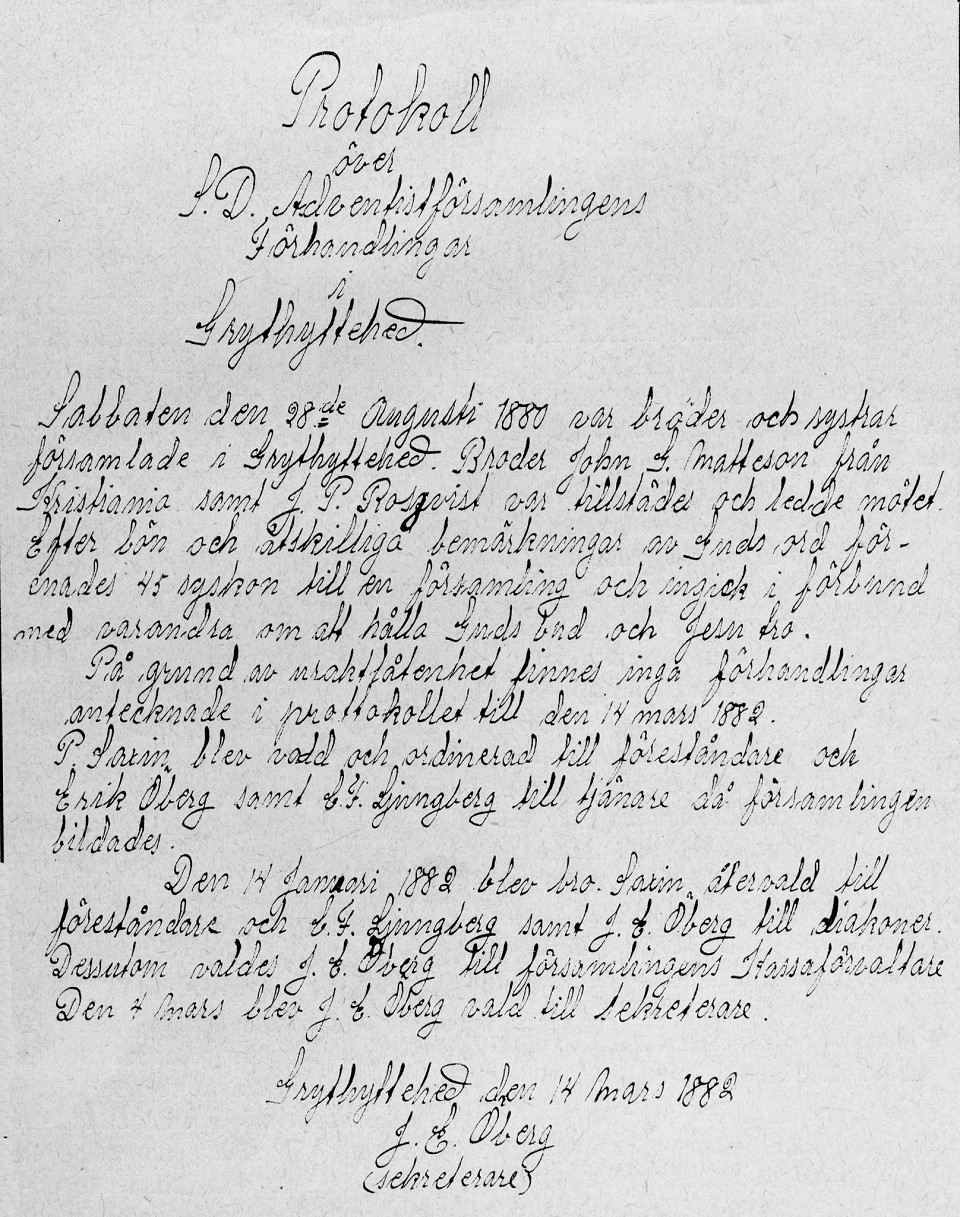 Protokoll
över
S. D. Adventistförsamlingens
Förhandlingar
i
Grythyttehed.
Sabbaten den 28de Augusti 1880 var bröder och systrar
församlade i Grythyttehed. Broder John G. Matteson från
Kristiania samt J. P. Rosqvist var tillstädes och ledde mötet.
Efter bön och åtskilliga bemärkningar av Guds ord för-
enades 45 syskon till en församling och ingick i förbund
med varandra om att hålla Guds bud och Jesu tro.
På grund av uraktlåtenhet finnes inga förhandlingar
antecknade i prottokollet till den 14 mars 1882.
P. Saxin blev vald och ordinerad till föreståndare och
Erik Öberg samt C.F. Ljungberg till tjänare då församlingen
bildades.
Den 14 Januari 1882 blev bro. Saxin återvald till
föreståndare och C.F. Ljungberg samt J. E. Öberg till diakoner.
Dessutom valdes J. E. Öberg till församlingens Kassaförvaltare
Den 4 mars blev J. E. Öberg vald till sekreterare.
Grythyttehed den 14 Mars 1882
J. E. Öberg
(sekreterare)